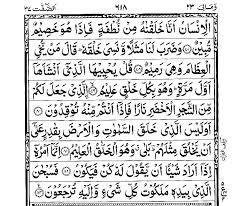 ومالی ٢٣ ٤١٨ الصّٰٓفّٰت ٣٧
الْاِنْسَانُ اَنَّا خَلَقْنٰهُ مِنْ نُّطْفَةٍ فَاِذَا هُوَ خَصِيْمٌ
مُّبِيْنٌ وَضَرَبَ لَنَا مَثَلًا وَّنَسِيَ خَلْقَهٗ قَالَ مَنْ يُّحْيِ
الْعِظَامَ وَهِيَ رَمِيْمٌ قُلْ يُحْيِيْهَا الَّذِيْٓ اَنْشَاَهَآ
اَوَّلَ مَرَّةٍ وَهُوَ بِكُلِّ خَلْقٍ عَلِيْمٌ الَّذِيْ جَعَلَ لَكُمْ
مِّنَ الشَّجَرِ الْاَخْضَرِ نَارًا فَاِذَآ اَنْتُمْ مِّنْهُ تُوْقِدُوْنَ
اَوَلَيْسَ الَّذِيْ خَلَقَ السَّمٰوٰتِ وَالْاَرْضَ بِقٰدِرٍ عَلٰٓى
اَنْ يَّخْلُقَ مِثْلَهُمْ بَلٰى وَهُوَ الْخَلّٰقُ الْعَلِيْمُ اِنَّمَآ اَمْرُهٗٓ
اِذَآ اَرَادَ شَيْـًٔا اَنْ يَّقُوْلَ لَهٗ كُنْ فَيَكُوْنُ فَسُبْحٰنَ
الَّذِيْ بِيَدِهٖ مَلَكُوْتُ كُلِّ شَيْءٍ وَّاِلَيْهِ تُرْجَعُوْنَ